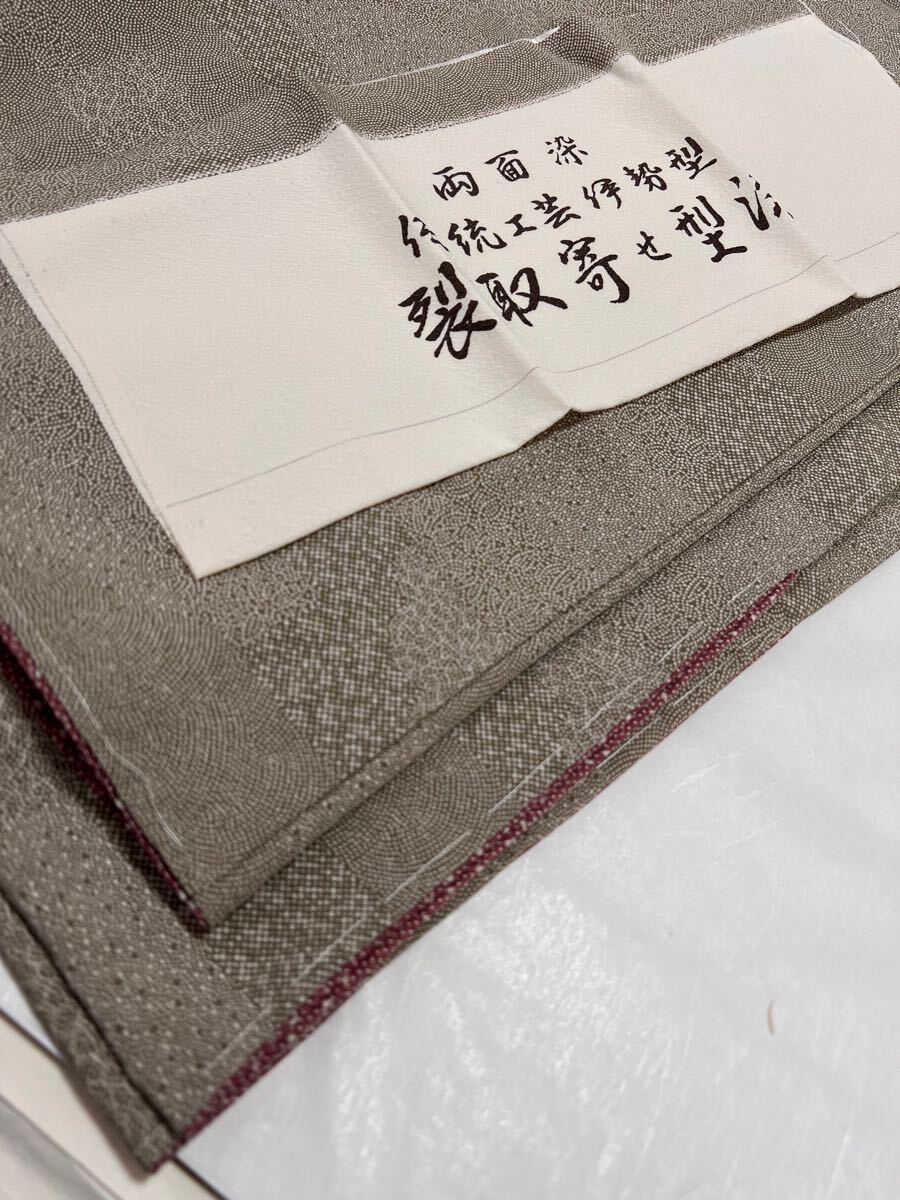 両面染
伝統工芸伊勢型
裂取寄せ型染